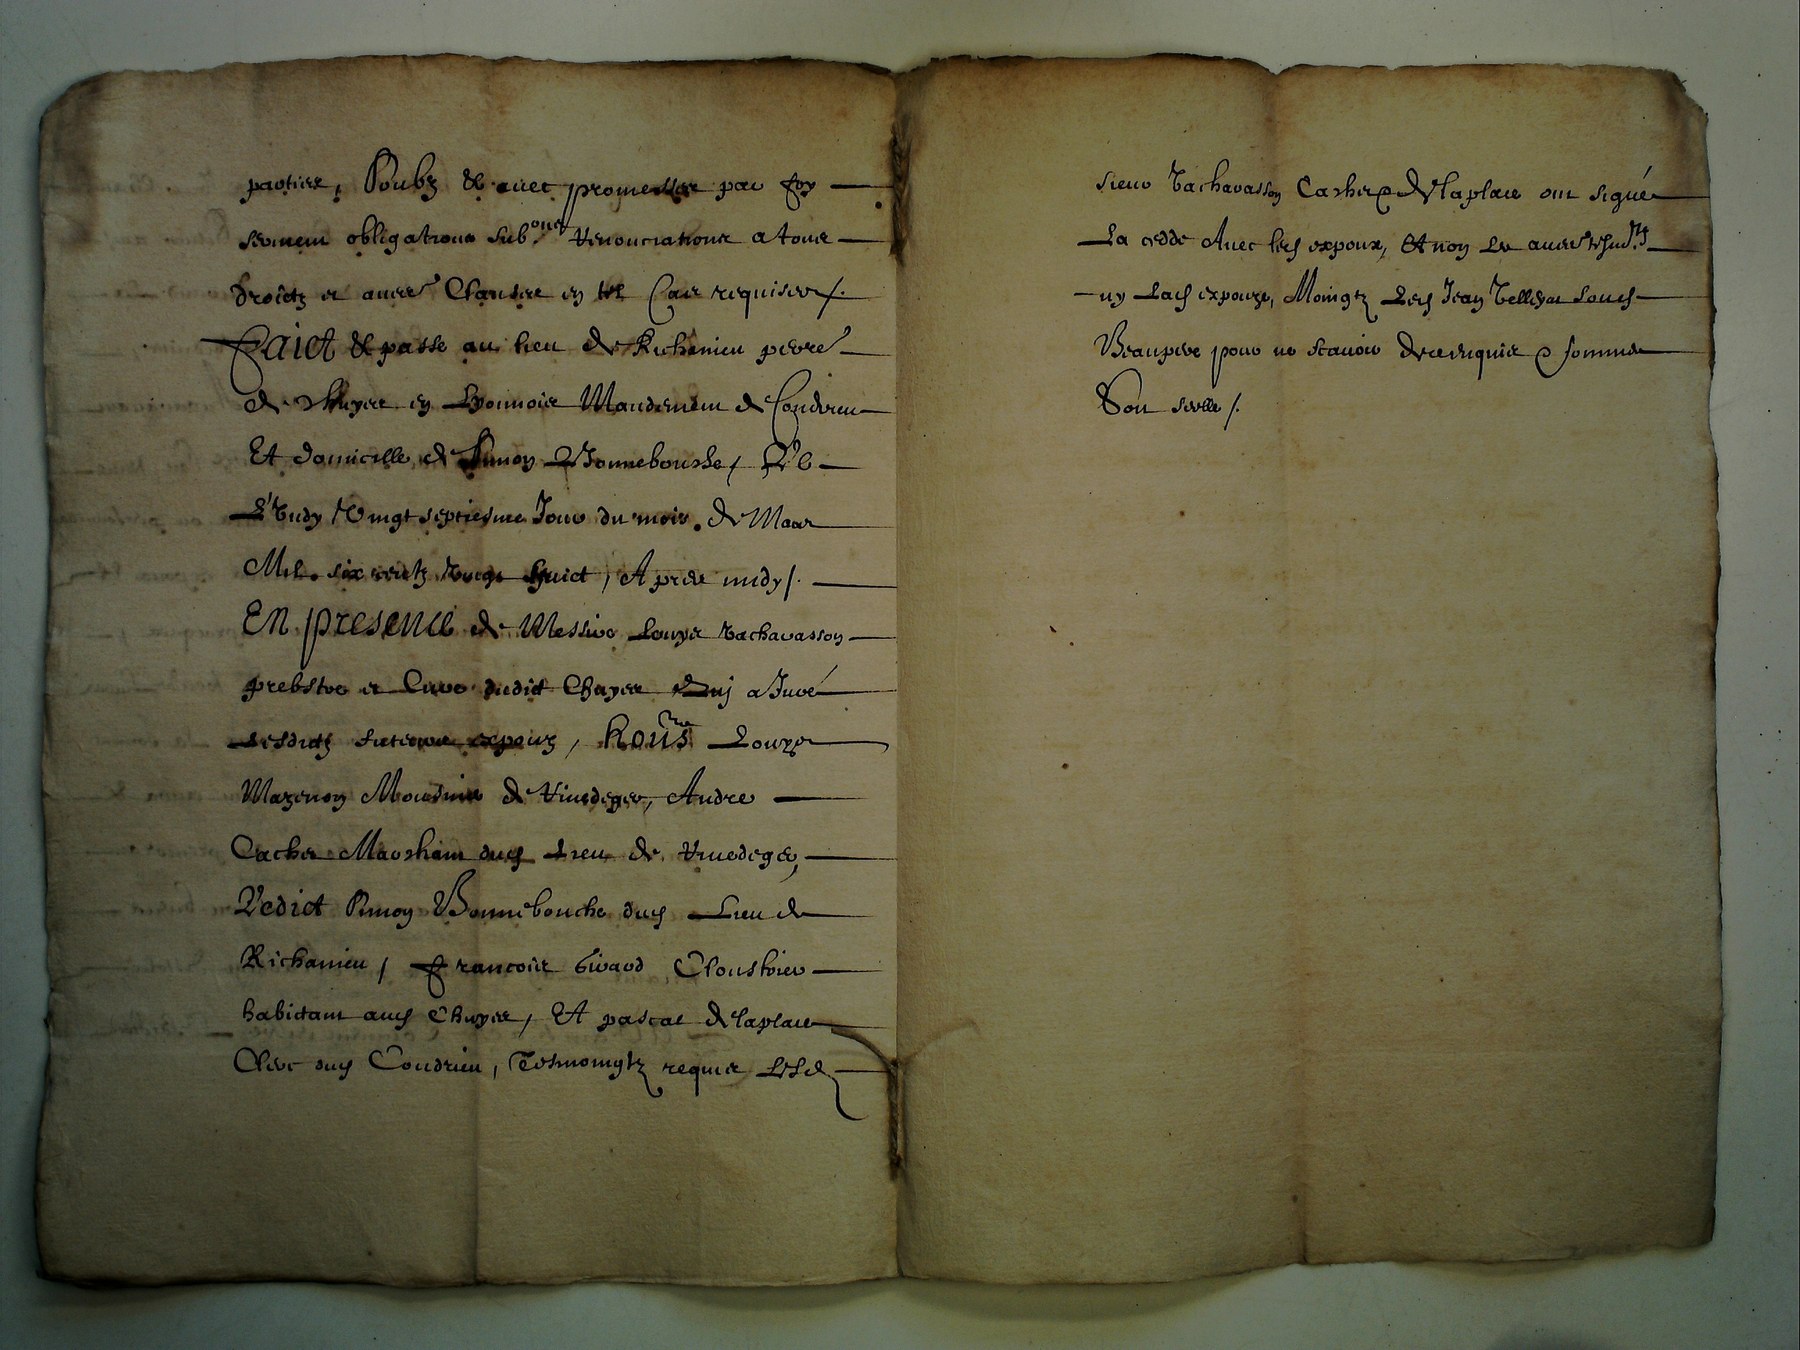 parties, Soubz & avec promesses par foy
serment obligations sub.ons renonciations a tous
droictz et autres Clauses en tel Cas requises /.
Faict & passe au lieu de Richanieu pcres
de Chuyes en Lyonnois Mandement de Condrieu
Et domicille de Simon Bonnebouche, Le
L'undy Vingt septiesme Jour du mois de Mars
Mil six centz vingt huict, Apres midy /.
En presence de Messire Louys Tachavasson
prebstre et Cure dudict Chuyes Quj a Juré
Lesdictz futeurs expoux, hons Louys
Mazenon Mousnier de Vinedeger, Andre
Cacher Marchant dud Lieu de Vinedeger,
Ledict Simon Bonnebouche dud Lieu de
Richanieu, francois Girard Cloustrier
habictant aud Chuyes, Et pascal Delaplace
Clerc dud Condrieu, Tesmoingtz requis Lesd
sieur Tachavasson Cacher & Delaplace ont signé
La cedde Avec led expoux, Et non Les autres tesmtz
ny Lad expouze, Moingtz Led Jean
Beaupere pour ne scavoir de ce enquis & sommes